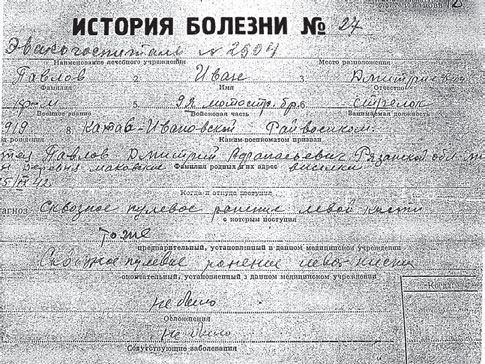 ИСТОРИЯ БОЛЕЗНИ № 27
Эвакогоспиталь N 2904
Наименование лечебного учреждения Место расположения
Павлов 2. Иван 3.
Фамилия Имя Отчество
92 мотостр. бр. 6. стрелок
Военное звание Войсковая часть Занимаемая должность
8. Катав-Ивановский Райвоенком.
Каким военкоматом призван
Павлов Дмитрий Рязанской обл.
деревня
Фамилия родных и их адрес
Когда и откуда поступил
Сквозное пулевое ранение левой кисти
с которым поступил
тоже
предварительный, установленный в данном медицинском учреждении
Сквозное пулевое ранение левой кисти
окончательный, установленный в данном медицинском учреждении
не было
Осложнения
не было
Сопутствующие заболевания